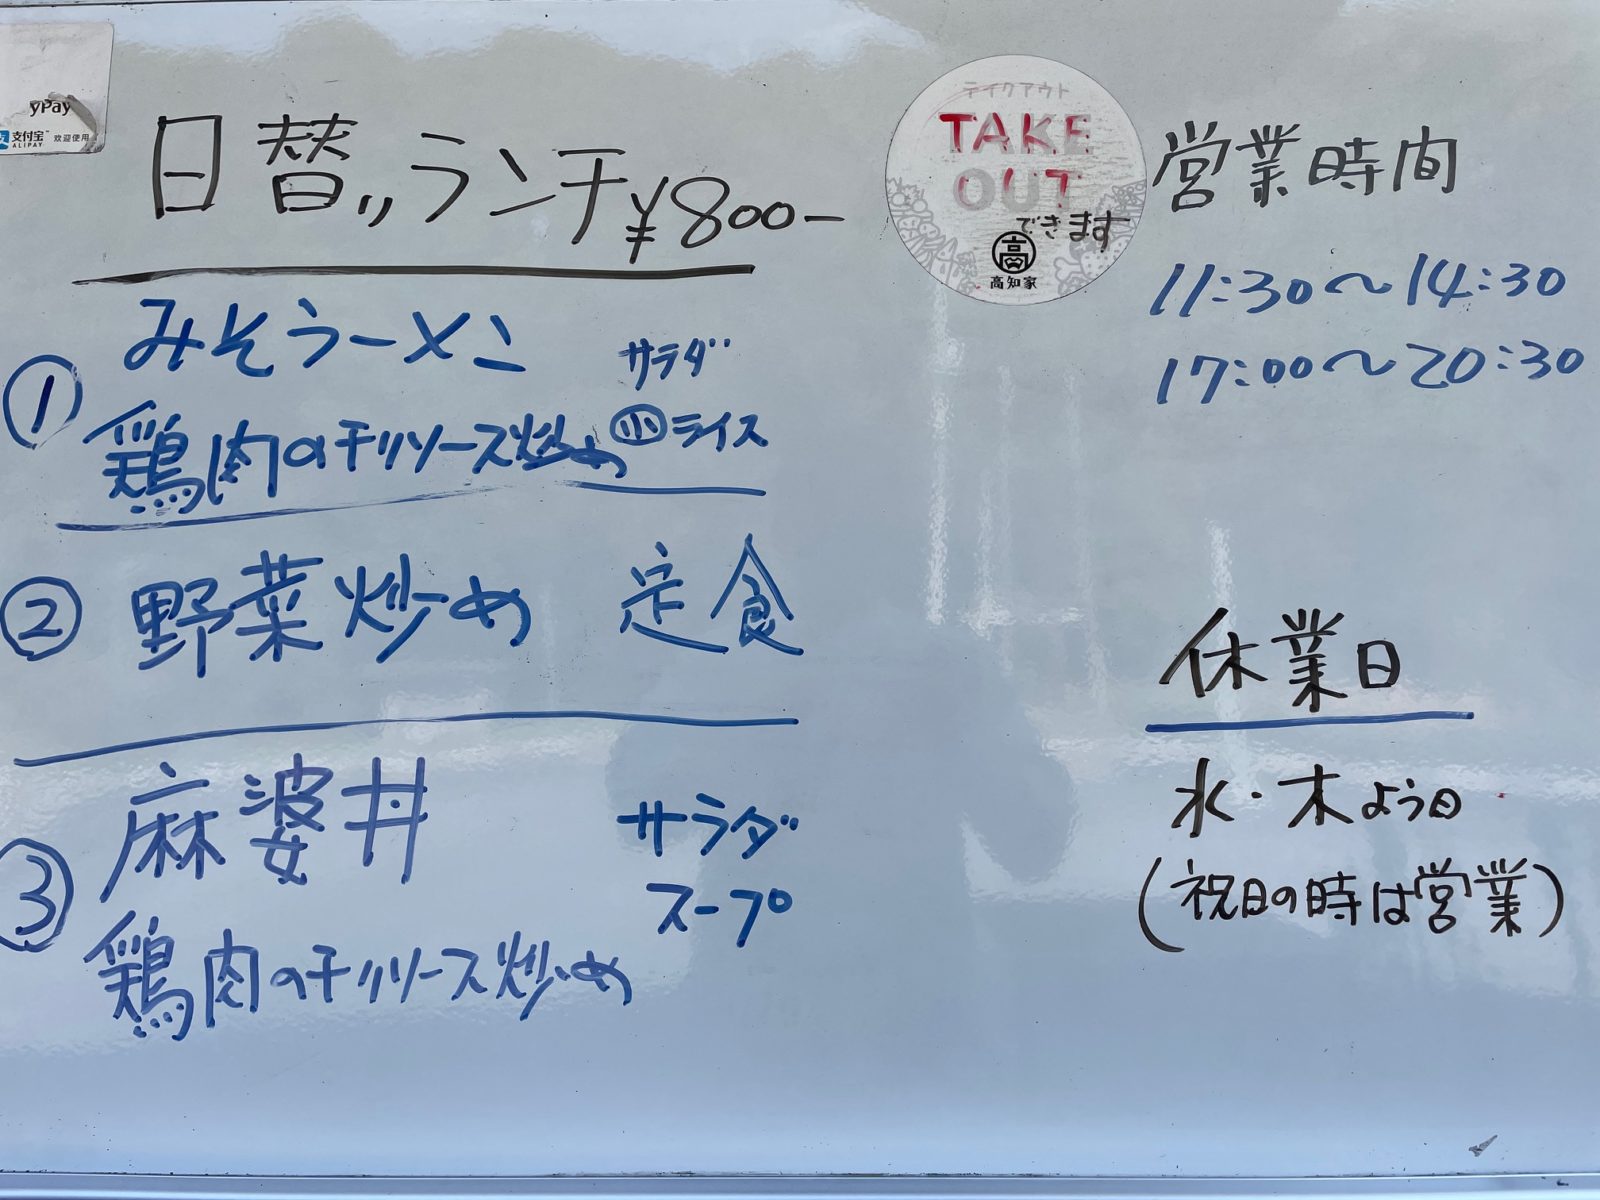 yPay
支付宝™ 欢迎使用
ALIPAY
日替りランチ ¥800-
① みそラーメン サラダ
鶏肉のチリソース炒め ㊥ライス
② 野菜炒め 定食
③ 麻婆丼 サラダ
スープ
鶏肉のチリソース炒め
テイクアウト
TAKE
OUT
できます
高
高知家
営業時間
11:30〜14:30
17:00〜20:30
休業日
水・木よう日
(祝日の時は営業)